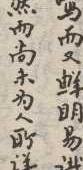 寫而又鮮明易
然而尚未为人所